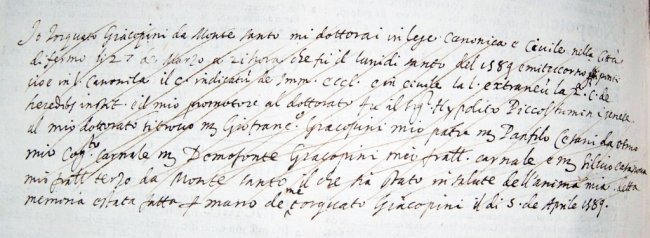 Io Torquato Giacopini da Monte santo mi dottorai in lege Canonica e Civile nella Città
di fermo il 27 de Marzo a 21 hora che fu il lunidi santo del 1589 e mi toccorno punti
cioe in l. Canonica il c. indicatū de Imm. eccl. e in civile la l. extraneū la 2. C. de
heredibs instit. ed il mio promotore al dottorato fu il sig. Hyppolito Piccolomini Senese
al mio dottorato ci trovò m Giofranc.o Giacopini mio patre m Panfilo Cesani da
mio Cog.to carnale m Demofonte Giacopini mio fratt. carnale e m Silvio
mio fratt. terzo da Monte santo il che sia stato in salute dell'anima mia. detta
memoria è stata fatta p mano de me Torquato Giacopini il di 5. de Aprile 1589.